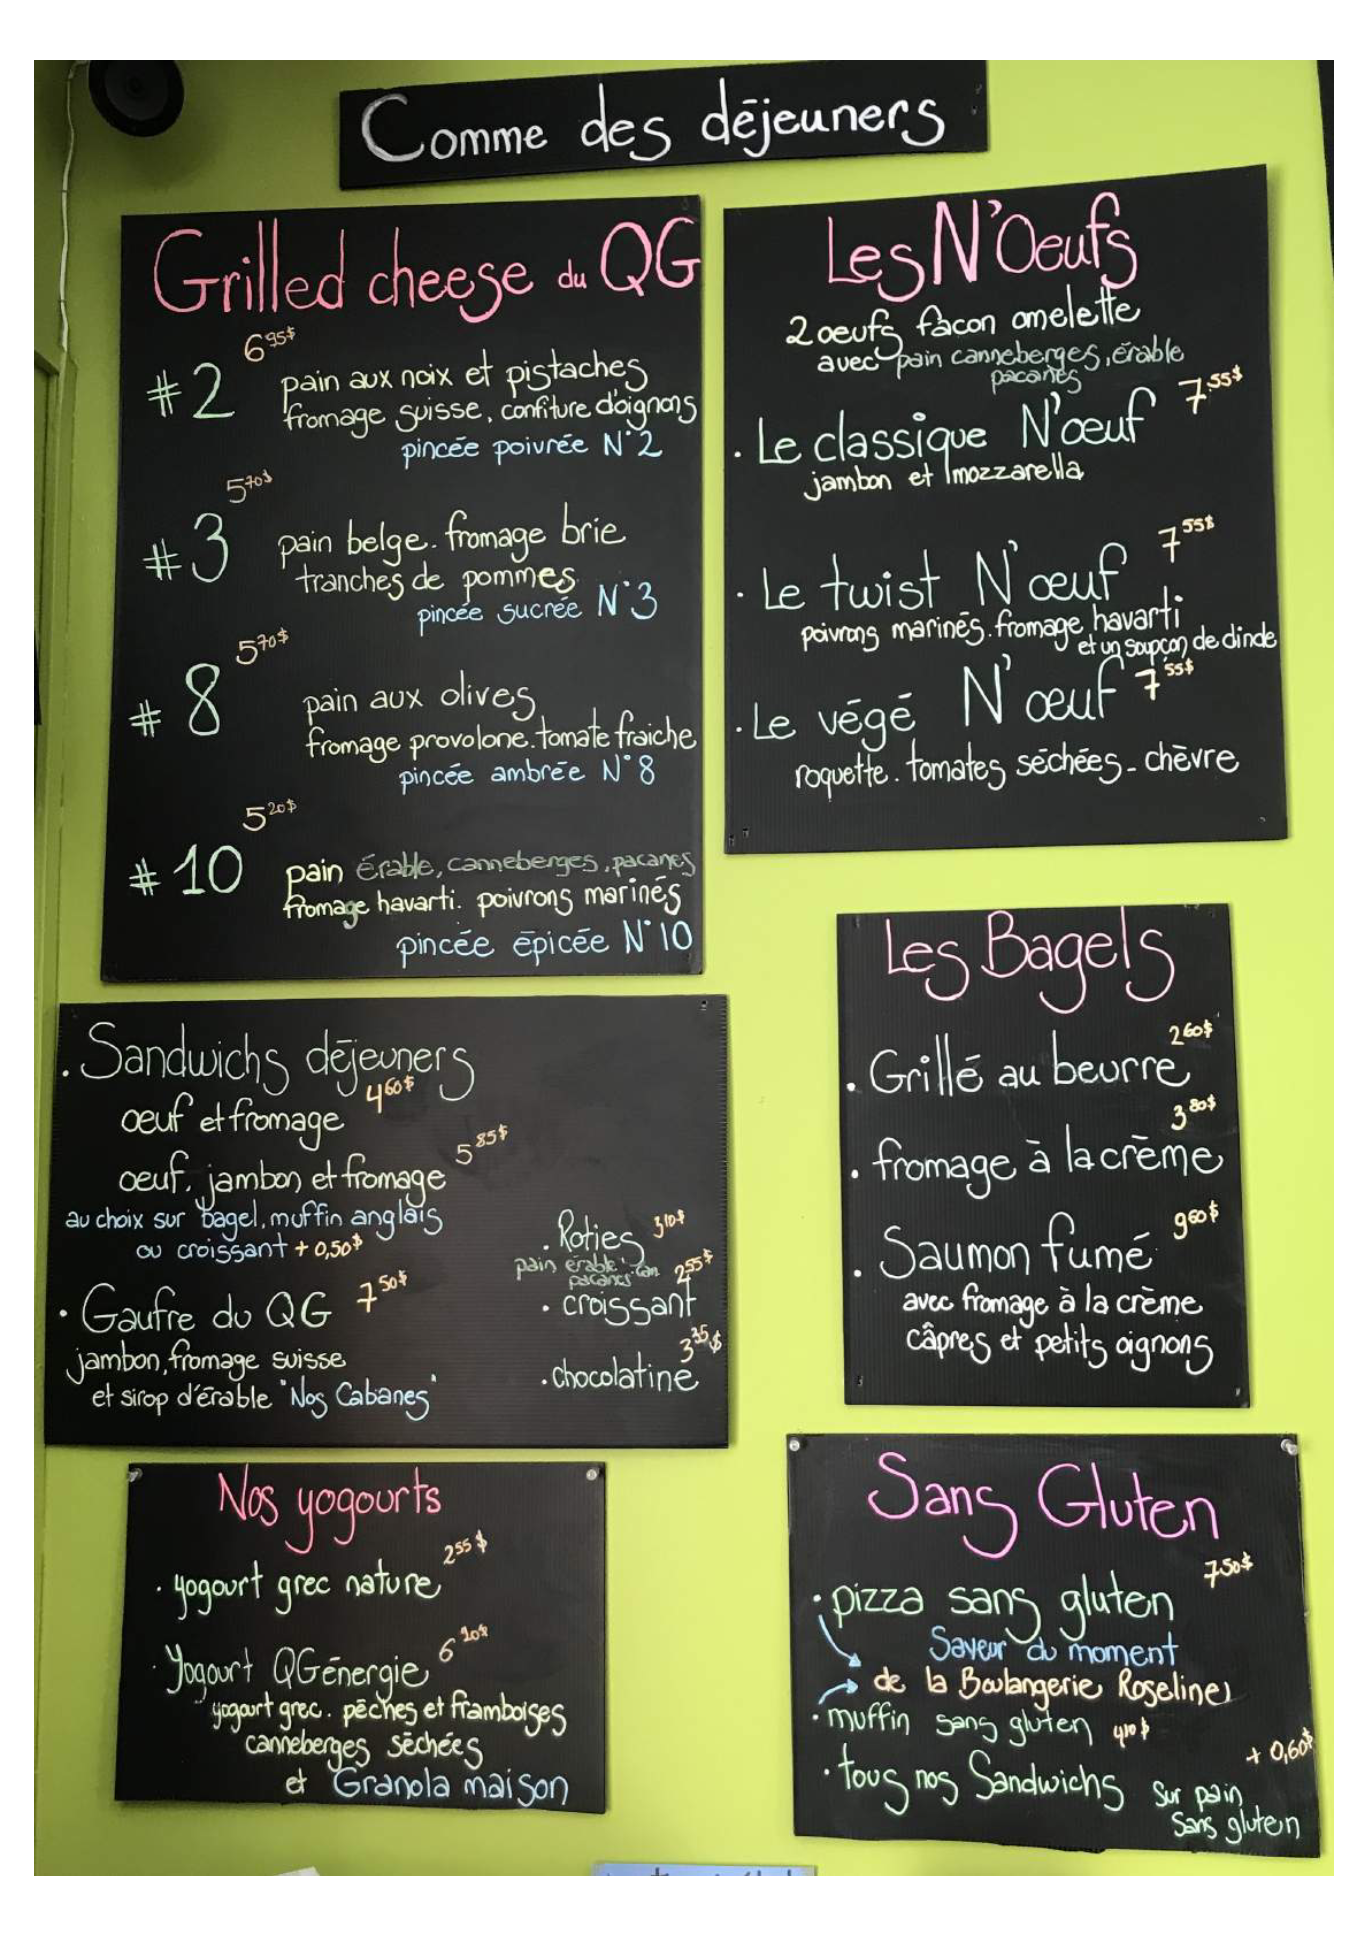 Comme des déjeuners
Grilled cheese du QG
6 95$
#2 pain aux noix et pistaches
fromage suisse, confiture d'oignons
pincée poivrée N°2
5 70$
#3 pain belge. fromage brie
tranches de pommes
pincée sucrée N°3
5 70$
#8 pain aux olives
fromage provolone. tomate fraiche
pincée ambrée N°8
5 20$
#10 pain érable, canneberges, pacanes
fromage havarti. poivrons marinés
pincée épicée N°10
Les N'Oeufs
2 oeufs façon omelette
avec pain canneberges, érable
pacanes
. Le classique N'œuf 7 55$
jambon et mozzarella
. Le twist N'œuf 7 55$
poivrons marinés. fromage havarti
et un soupçon de dinde
. Le végé N'œuf 7 55$
roquette. tomates séchées - chèvre
. Sandwichs déjeuners
oeuf et fromage 4 60$
oeuf, jambon et fromage 5 85$
au choix sur bagel, muffin anglais
ou croissant + 0,50$
. Gaufre du QG 7 50$
jambon, fromage suisse
et sirop d'érable "Nos Cabanes"
. Roties 3 10$
pain érable can
pacanes
. croissant 2 55$
. chocolatine 3 35$
Les Bagels
. Grillé au beurre 2 60$
. fromage à la crème 3 80$
. Saumon fumé 9 60$
avec fromage à la crème
câpres et petits oignons
Nos yogourts
. yogourt grec nature 2 55$
. Yogourt QGénergie 6
yogourt grec. pêches et framboises
canneberges séchées
et Granola maison
Sans Gluten
. pizza sans gluten 7 50$
Saveur du moment
de la Boulangerie Roseline
. muffin sans gluten 4 10$
. tous nos Sandwichs sur pain + 0,60$
Sans gluten